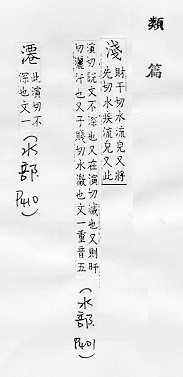 類篇
淺
財干切水流皃又將
先切水疾流皃又此
演切說文不深也又在演切減也又則旰
切灒汙也又子賤切水濺也文一重音五
(水部 P401)
濹
此演切不
深也文一
(水部 P410)